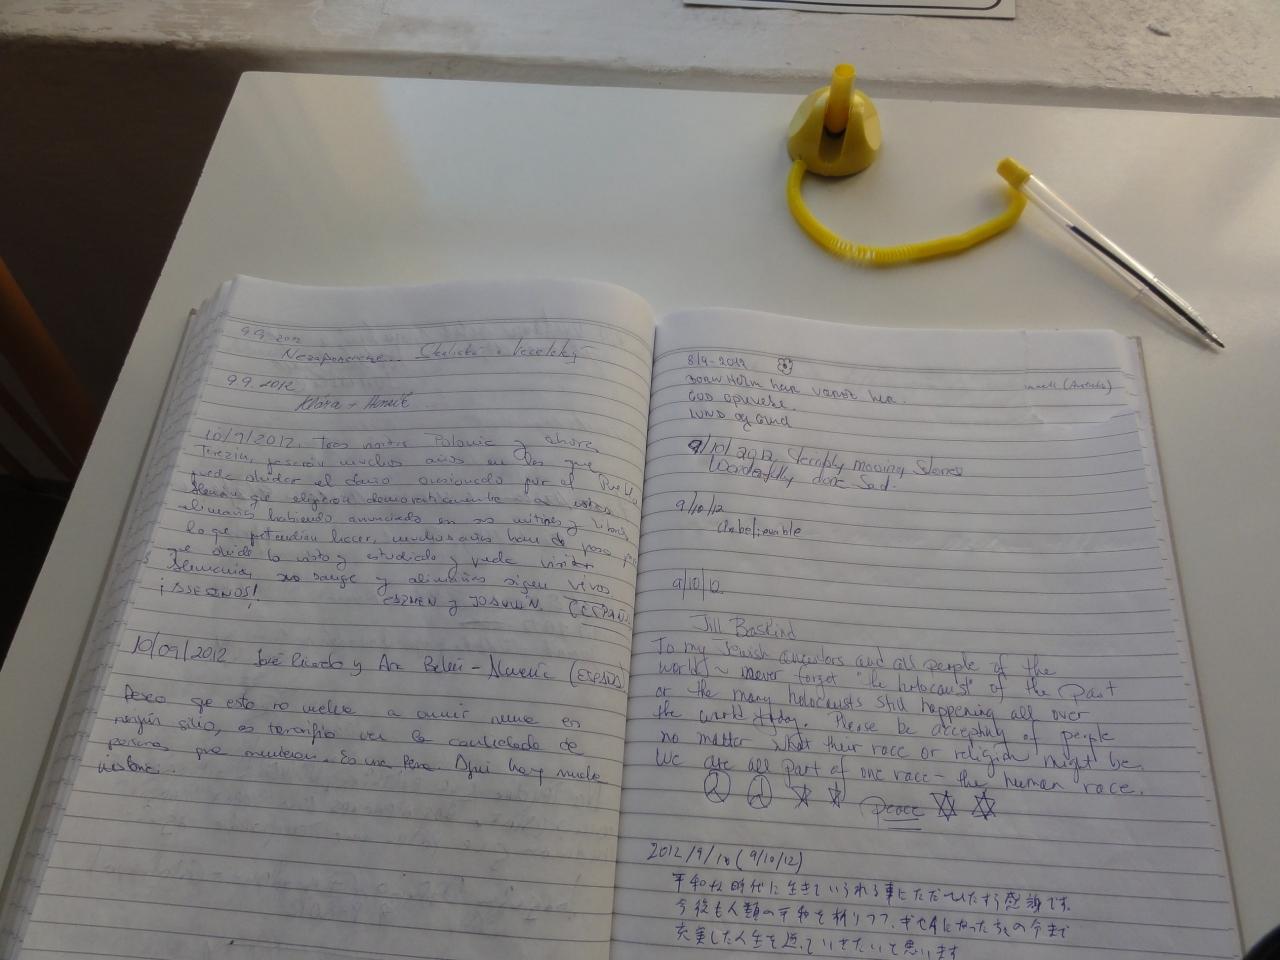 9.9. 2012
Nezapomeneme...
9.9. 2012
Klára +
10/9/2012. Tras visitar Polonia y ahora
Terezin, pasarán muchos años en los que
pueda olvidar el daño ocasionado por el Pueblo
Alemán que eligieron democraticamente a estas
alimañas habiendo anunciado en sus mitines y libros
lo que pretendian hacer, muchos años han de pasar
que olvide lo visto y estudiado y pueda visitar
Alemania, su sangre y alimañas siguen vivos
¡ASESINOS! y JOAQUÍN. (ESPAÑA)
10/09/2012 José Ricardo y Ana Belén - (ESPAÑA)
Deseo qe esto no vuelva a ocurrir nunca en
ningún sitio, es terrorifico ver la cantidad de
personas que murieron. Es una pena. Aqui hay mucha
historia.
8/9-2012
GOD oplevelse.
9/10/2012 terribly moving stories
Wonderfully done Sad.
9/10/12
Unbelievable
9/10/12.
Jill Baskind
To my Jewish ancestors and all people of the
world ~ never forget "the holocaust" of the past
or the many holocausts still happening all over
the world today. Please be accepting of people
no matter what their race or religion might be.
We are all part of one race - the human race.
Peace
2012/9/10 (9/10/12)
平和な時代に生きていられる事にただひたすら感謝です。
今後も人類の平和を祈りつつ、
充実した人生を送っていきたいと思います